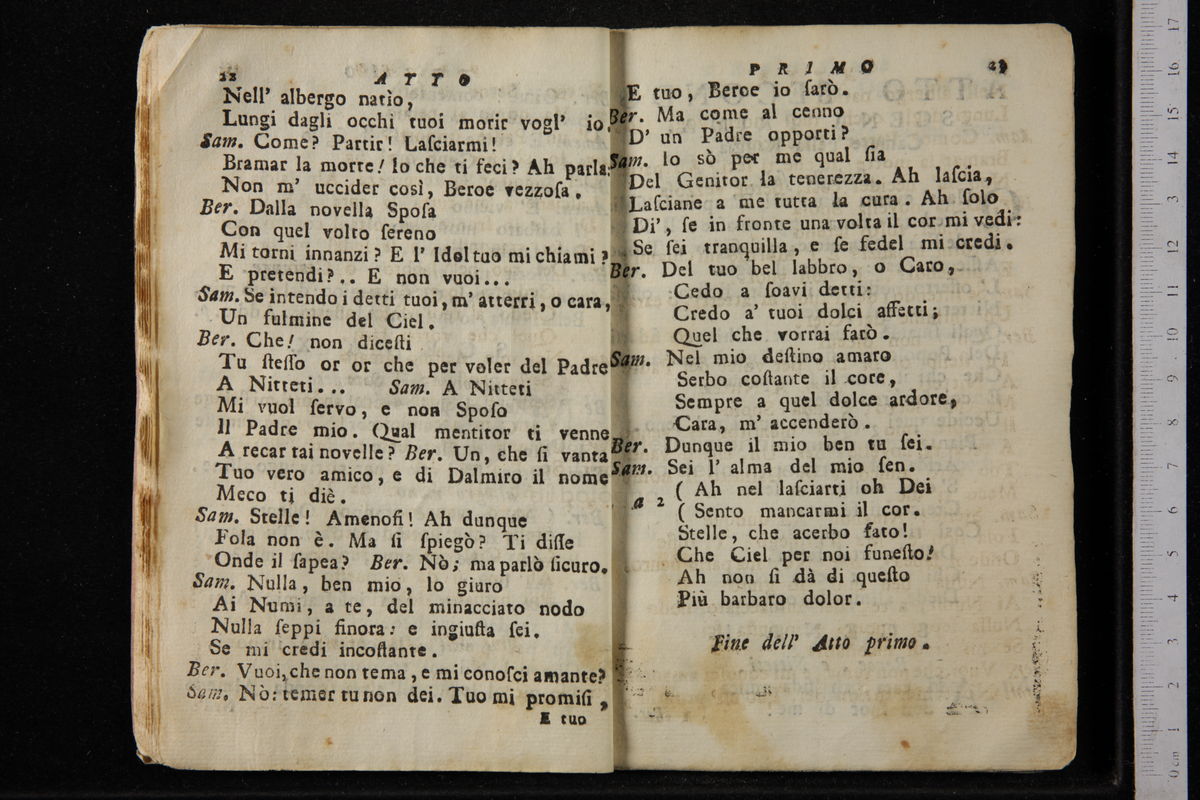 22 ATTO
Nell' albergo natìo,
Lungi dagli occhi tuoi morir vogl' io.
Sam. Come? Partir! Laſciarmi!
Bramar la morte! Io che ti feci? Ah parla:
Non m' uccider così, Beroe vezzoſa.
Ber. Dalla novella Spoſa
Con quel volto ſereno
Mi torni innanzi? E l' Idol tuo mi chiami?
E pretendi?.. E non vuoi...
Sam. Se intendo i detti tuoi, m' atterri, o cara,
Un fulmine del Ciel.
Ber. Che! non diceſti
Tu ſteſſo or or che per voler del Padre
A Nitteti... Sam. A Nitteti
Mi vuol ſervo, e non Spoſo
Il Padre mio. Qual mentitor ti venne
A recar tai novelle? Ber. Un, che ſi vanta
Tuo vero amico, e di Dalmiro il nome
Meco ti diè.
Sam. Stelle! Amenofi! Ah dunque
Fola non è. Ma ſi ſpiegò? Ti diſſe
Onde il ſapea? Ber. Nò; ma parlò ſicuro.
Sam. Nulla, ben mio, lo giuro
Ai Numi, a te, del minacciato nodo
Nulla ſeppi finora: e ingiuſta ſei.
Se mi credi incoſtante.
Ber. Vuoi, che non tema, e mi conoſci amante?
Sam. Nò: temer tu non dei. Tuo mi promiſi,
E tuo
PRIMO 23
E tuo, Beroe io ſarò.
Ber. Ma come al cenno
D' un Padre opporti?
Sam. Io sò per me qual ſia
Del Genitor la tenerezza. Ah laſcia,
Laſciane a me tutta la cura. Ah ſolo
Di', ſe in fronte una volta il cor mi vedi:
Se ſei tranquilla, e ſe fedel mi credi.
Ber. Del tuo bel labbro, o Caro,
Cedo a ſoavi detti:
Credo a' tuoi dolci affetti;
Quel che vorrai farò.
Sam. Nel mio deſtino amaro
Serbo coſtante il core,
Sempre a quel dolce ardore,
Cara, m' accenderò.
Ber. Dunque il mio ben tu ſei.
Sam. Sei l' alma del mio ſen.
( Ah nel laſciarti oh Dei
a 2
( Sento mancarmi il cor.
Stelle, che acerbo fato!
Che Ciel per noi funeſto!
Ah non ſi dà di queſto
Più barbaro dolor.
Fine dell' Atto primo.